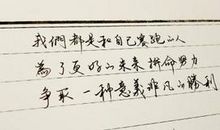 我們都是和自己賽跑的人
為了更好的未來拚命努力
爭取一種意義非凡的勝利